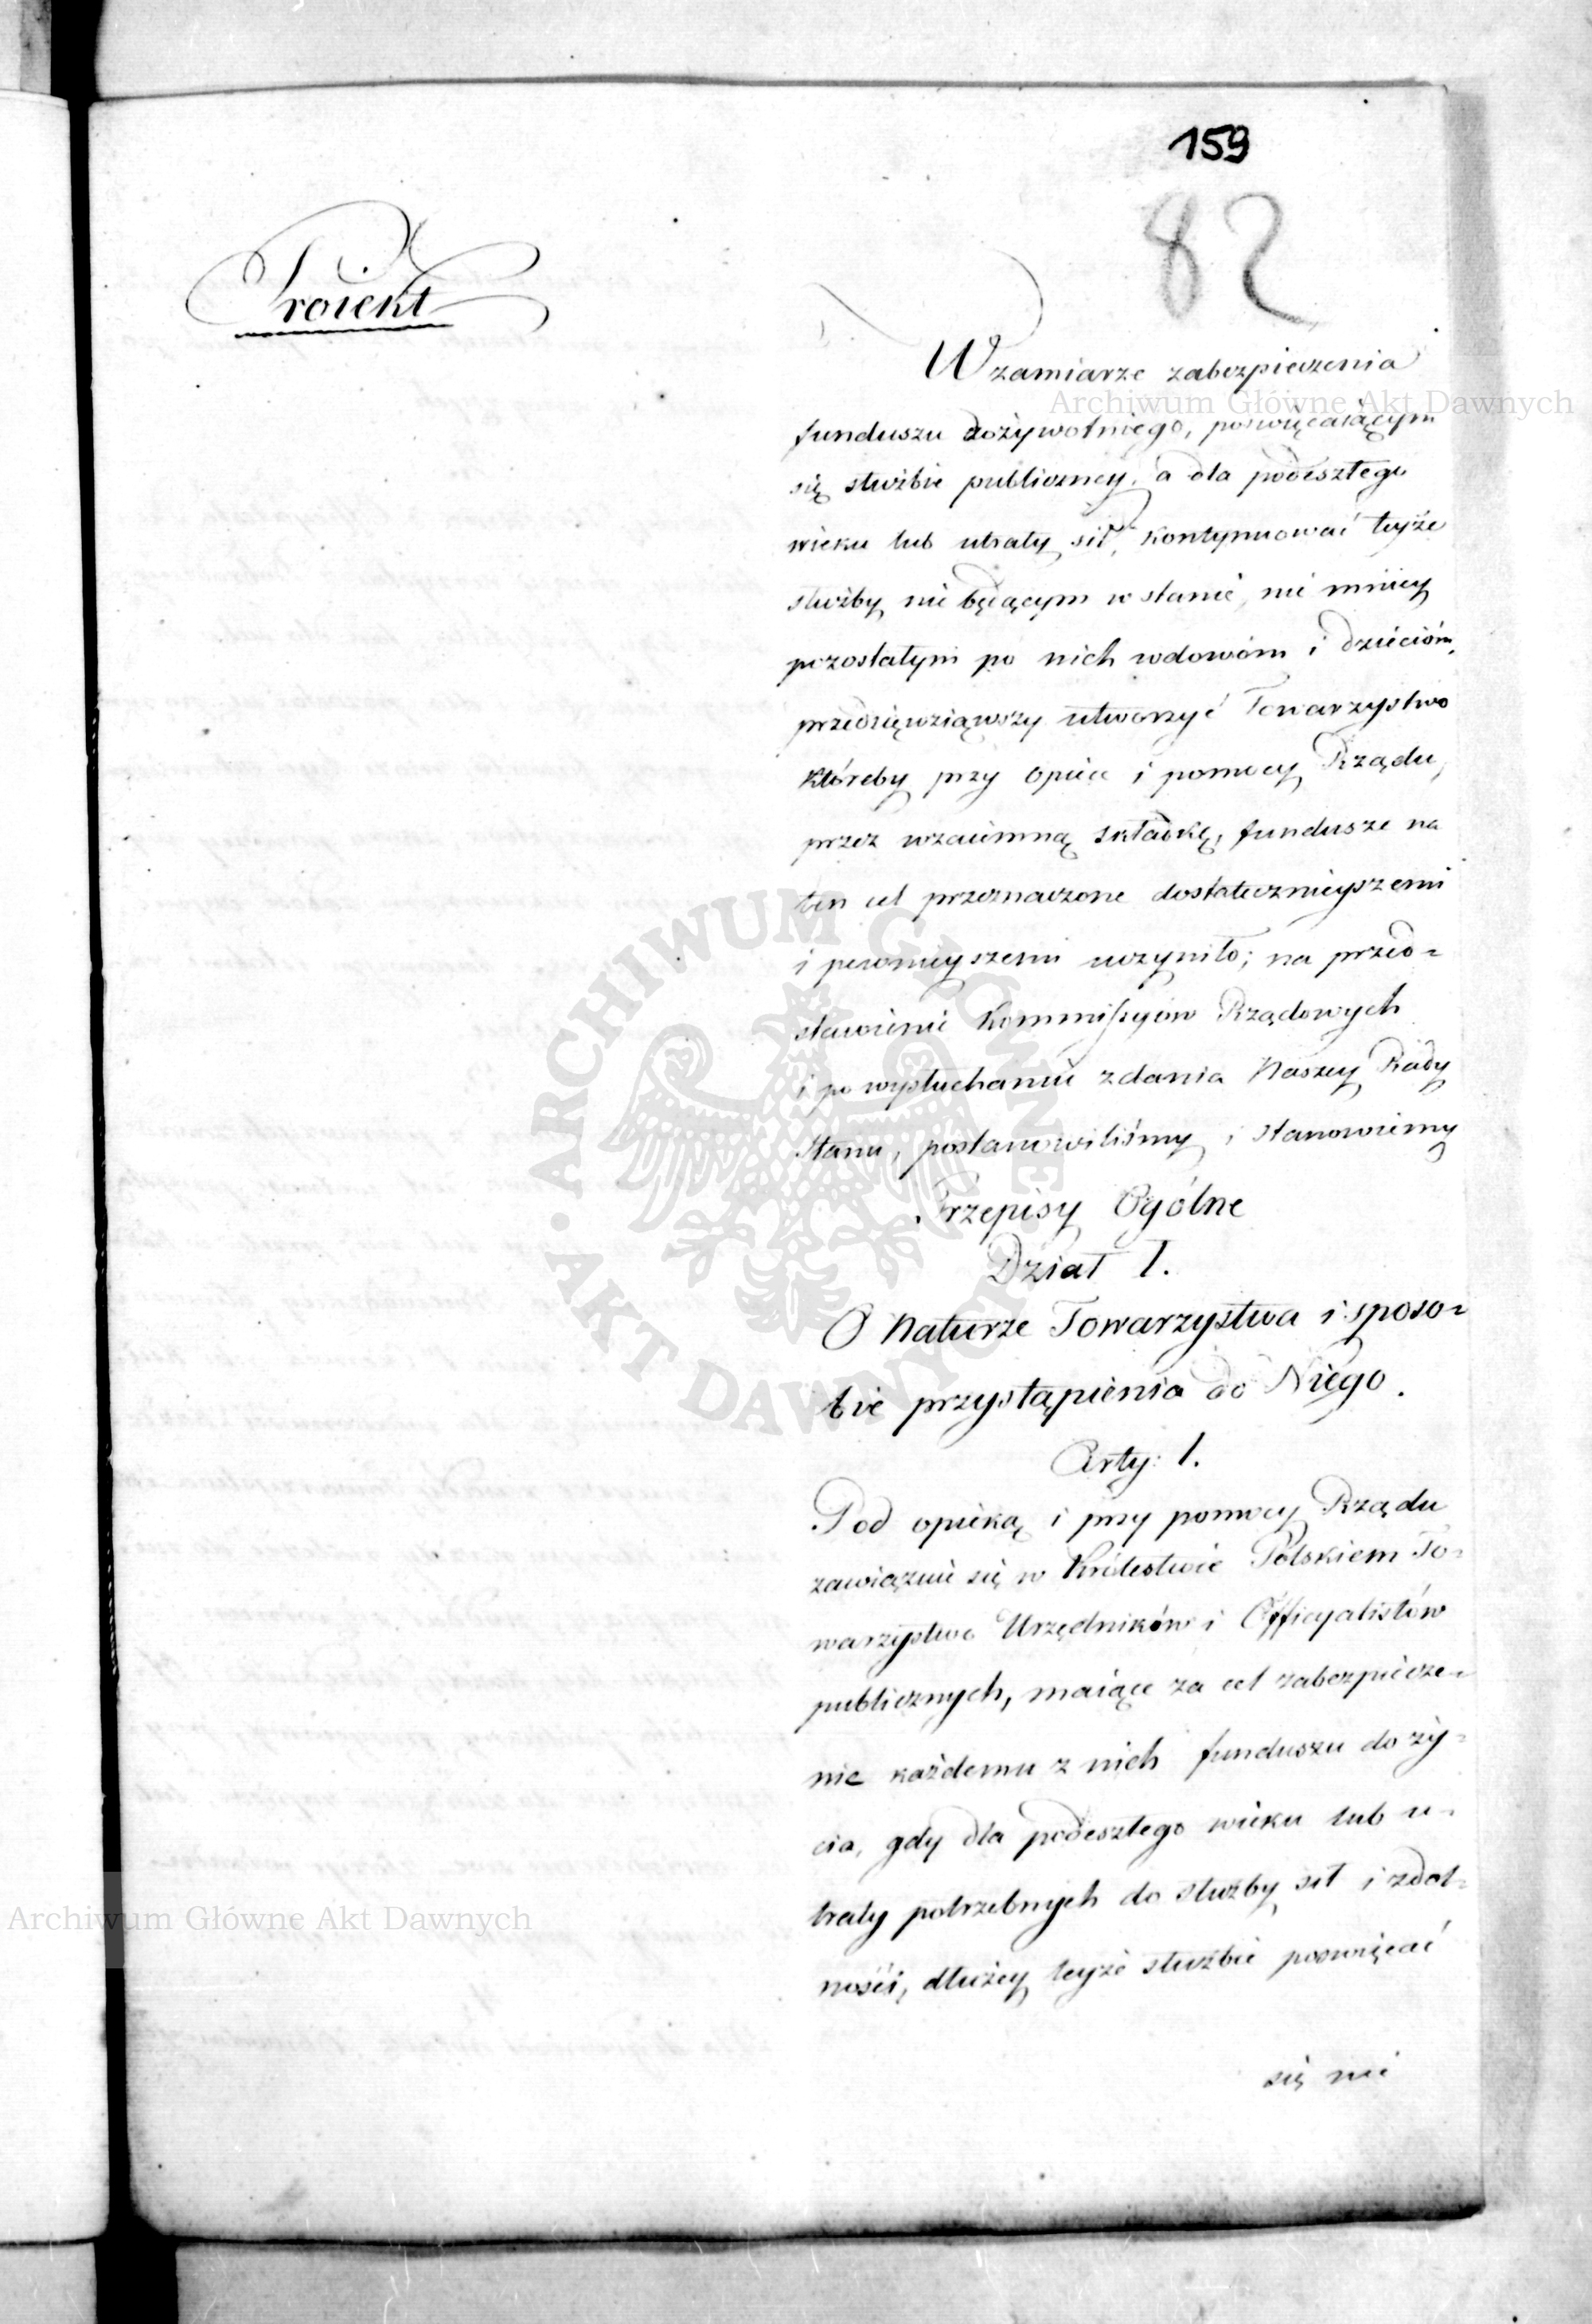 159
82
Proiekt
W zamiarze zabezpieczenia
funduszu dożywotniego, poswięcaiącym
się służbie publiczney, a dla podeszłego
wieku lub utraty sił, kontynuować teyże
służby nie będącym w stanie, nie mniey
pozostałym po nich wdowóm i dziecióm,
przedsięwziąwszy utworzyć Towarzystwo
któreby przy opiece i pomocy Rządu,
przez wzaiemną składkę, fundusze na
ten cel przeznaczone dostatecznieyszemi
i pewnieyszemi uczyniło; na przed=
stawienie Kommissyiów Rządowych
i po wysłuchaniu zdania Naszey Rady
Stanu, postanowiliśmy i stanowiemy
Przepisy Ogólne
Dział I.
O Naturze Towarzystwa i sposo=
bie przystąpienia do Niego.
Arty: 1.
Pod opieką i przy pomocy Rządu
zawiązuie się w Królestwie Polskiem To=
warzystwo Urzędników i Officyalistów
publicznych, maiące za cel zabezpiecze=
nie każdemu z nich funduszu do ży=
cia, gdy dla podeszłego wieku lub u=
traty potrzebnych do służby sił i zdol=
ności, dłużey teyże służbie poswięcać
się nie
Archiwum Główne Akt Dawnych
Archiwum Główne Akt Dawnych
ARCHIWUM GŁÓWNE AKT DAWNYCH